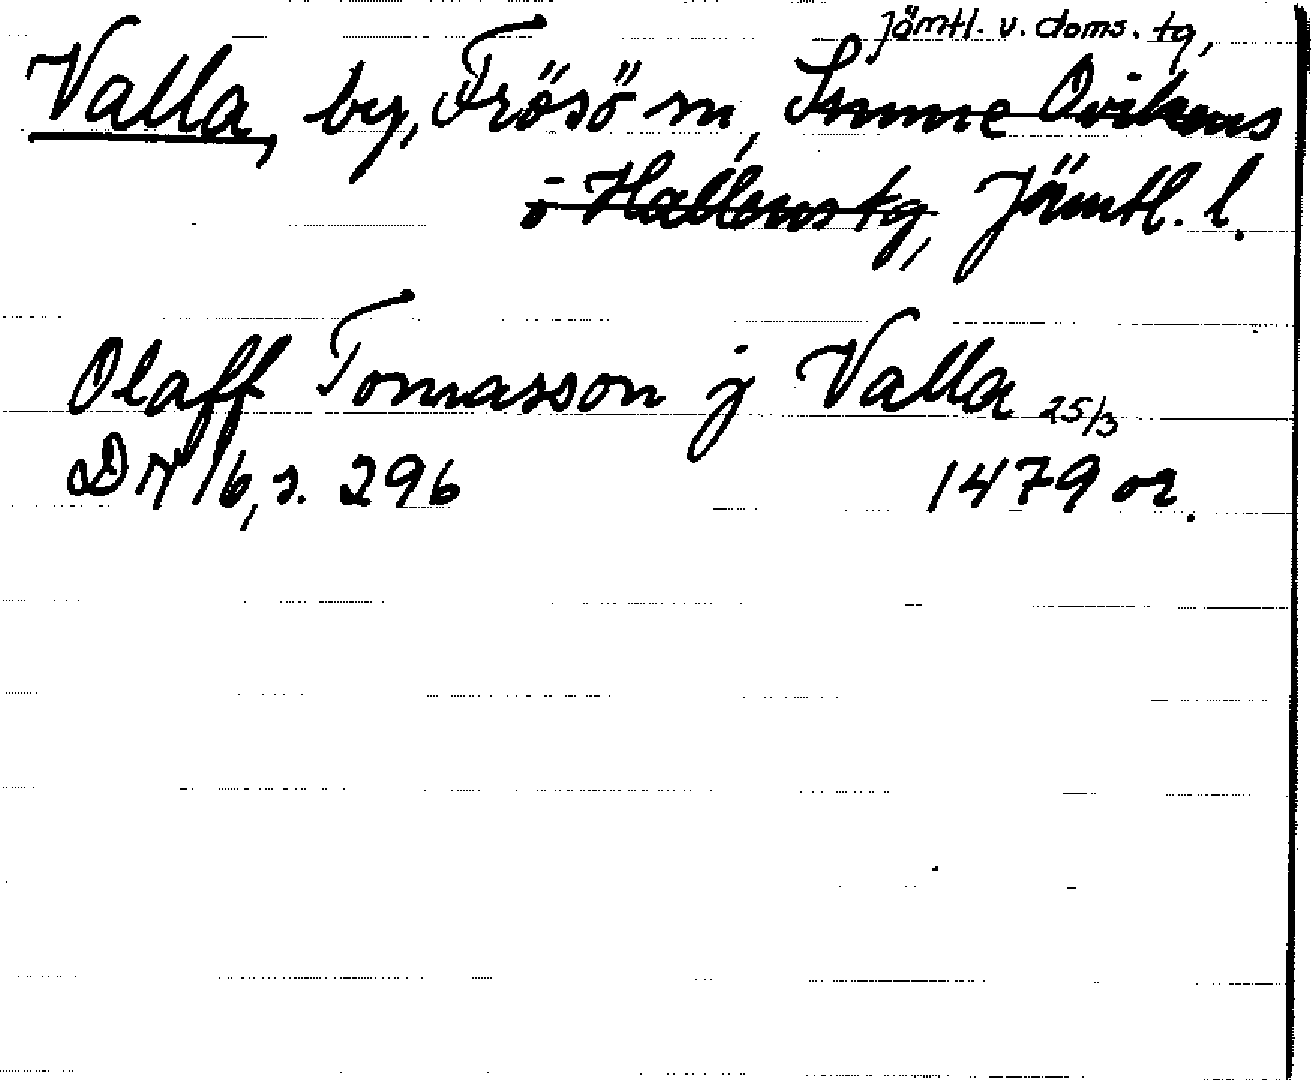 Jämtl. v. doms. tg,
Valla, by, Frösö sn, Sunne Ovikens
o Hallens tg, Jämtl. l.
Olaff Tomasson j Valla 25/3
DN 16, s. 296 1479 or.